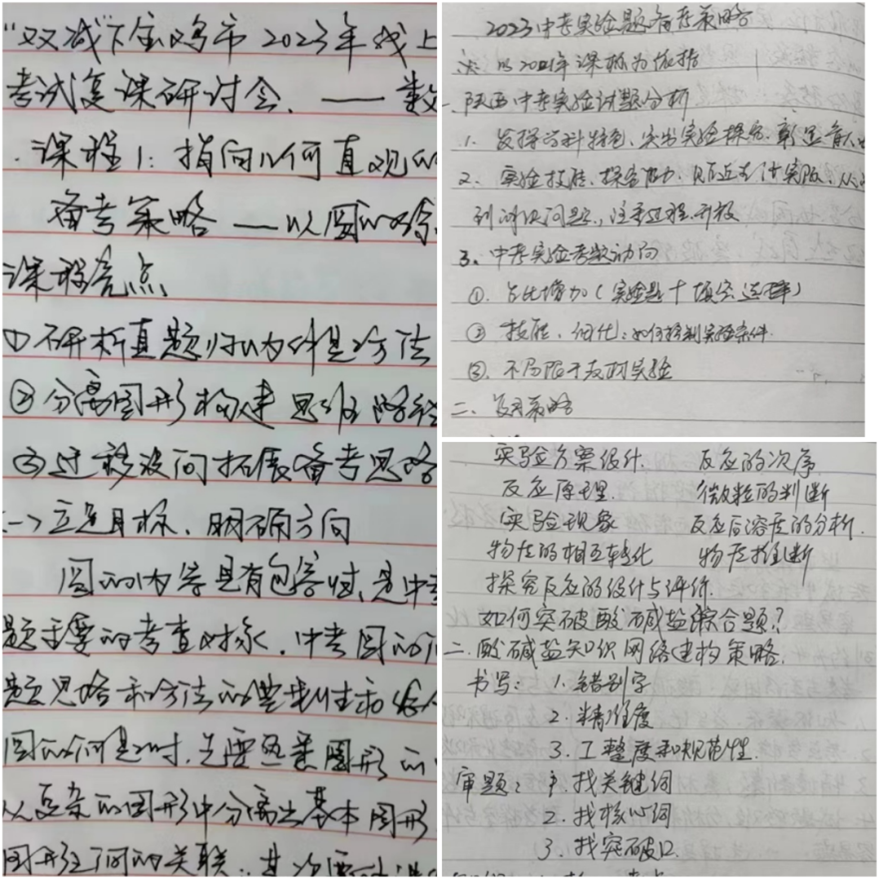 "双减"下宝鸡市2023年线上
考试复课研讨会. —— 数
课程1: 指向几何直观的
备考策略 —— 以圆的综
课程亮点
①研析真题归纳 方法
②分离图形构建思维路径
③迁移设问拓展备考思路
一> 立足目标、明确方向
圆的内容具有包容性,是中考
题主要的考查对象.中考圆的
题思路和方法的
圆的问题时,先要熟悉图形的
从复杂的图形中分离出基本图形
图形之间的关联.;其次要
2023中考实验题备考策略
以2021年课标为依据
一 陕西中考实验试题分析
1. 发挥学科特色,突出实验探究,彰显育人
2. 实验技能、探究能力、 从
到解决问题,注重过程
3、中考实验考题动向
①. 占比增加(实验题十填空 选择)
② 技能、细化:如何控制实验条件.
③. 不局限于教材实验
二、 策略
实验方案设计. 反应的次序
反应原理. 微粒的判断
实验现象 反应后溶质的分析.
物质的相互转化 物质推断
探究反应的设计与评价.
如何突破酸碱盐综合题?
二.酸碱盐知识网络建构策略.
书写: 1. 错别字
2. 精准度
3. 工整度和规范性.
审题: 1. 找关键词
2. 找核心词
3. 找突破口